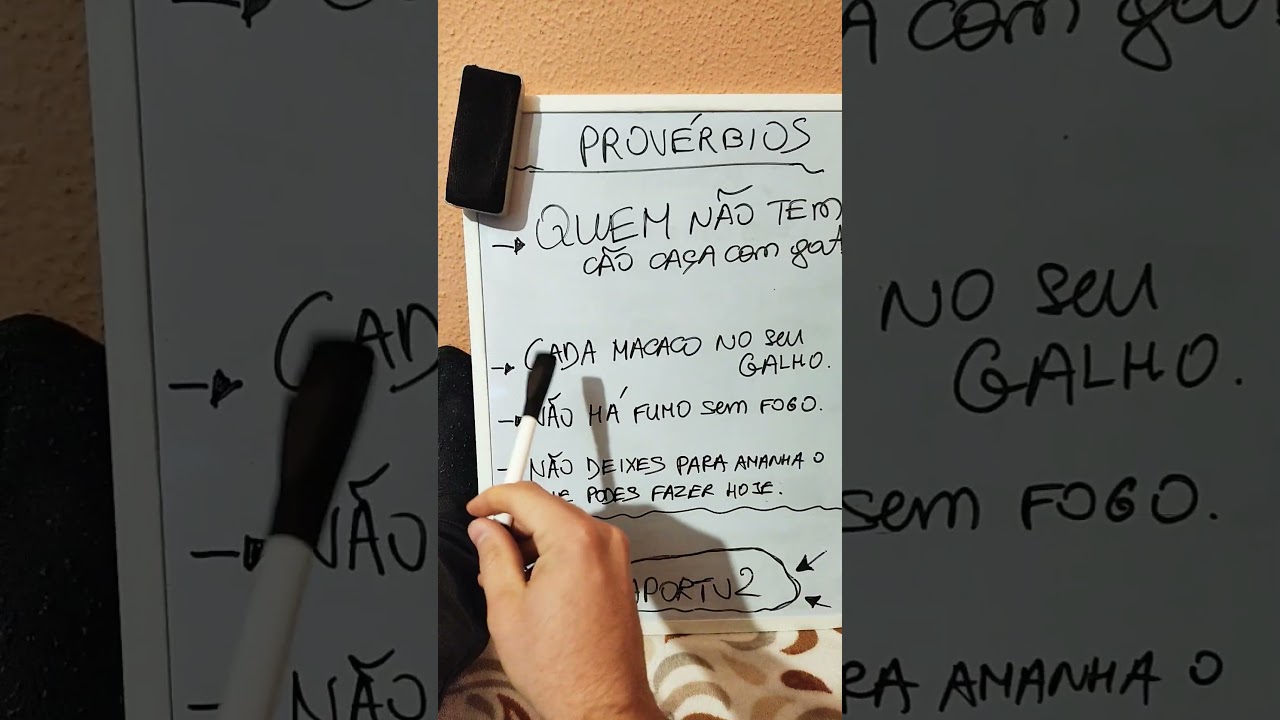 PROVÉRBIOS
QUEM NÃO TEM
CÃO CAÇA com gat
CADA MACACO NO SEU
GALHO.
NÃO HÁ FUMO sem FOGO.
NÃO DEIXES PARA AMANHA O
PODES FAZER HOJE.
APORTU2